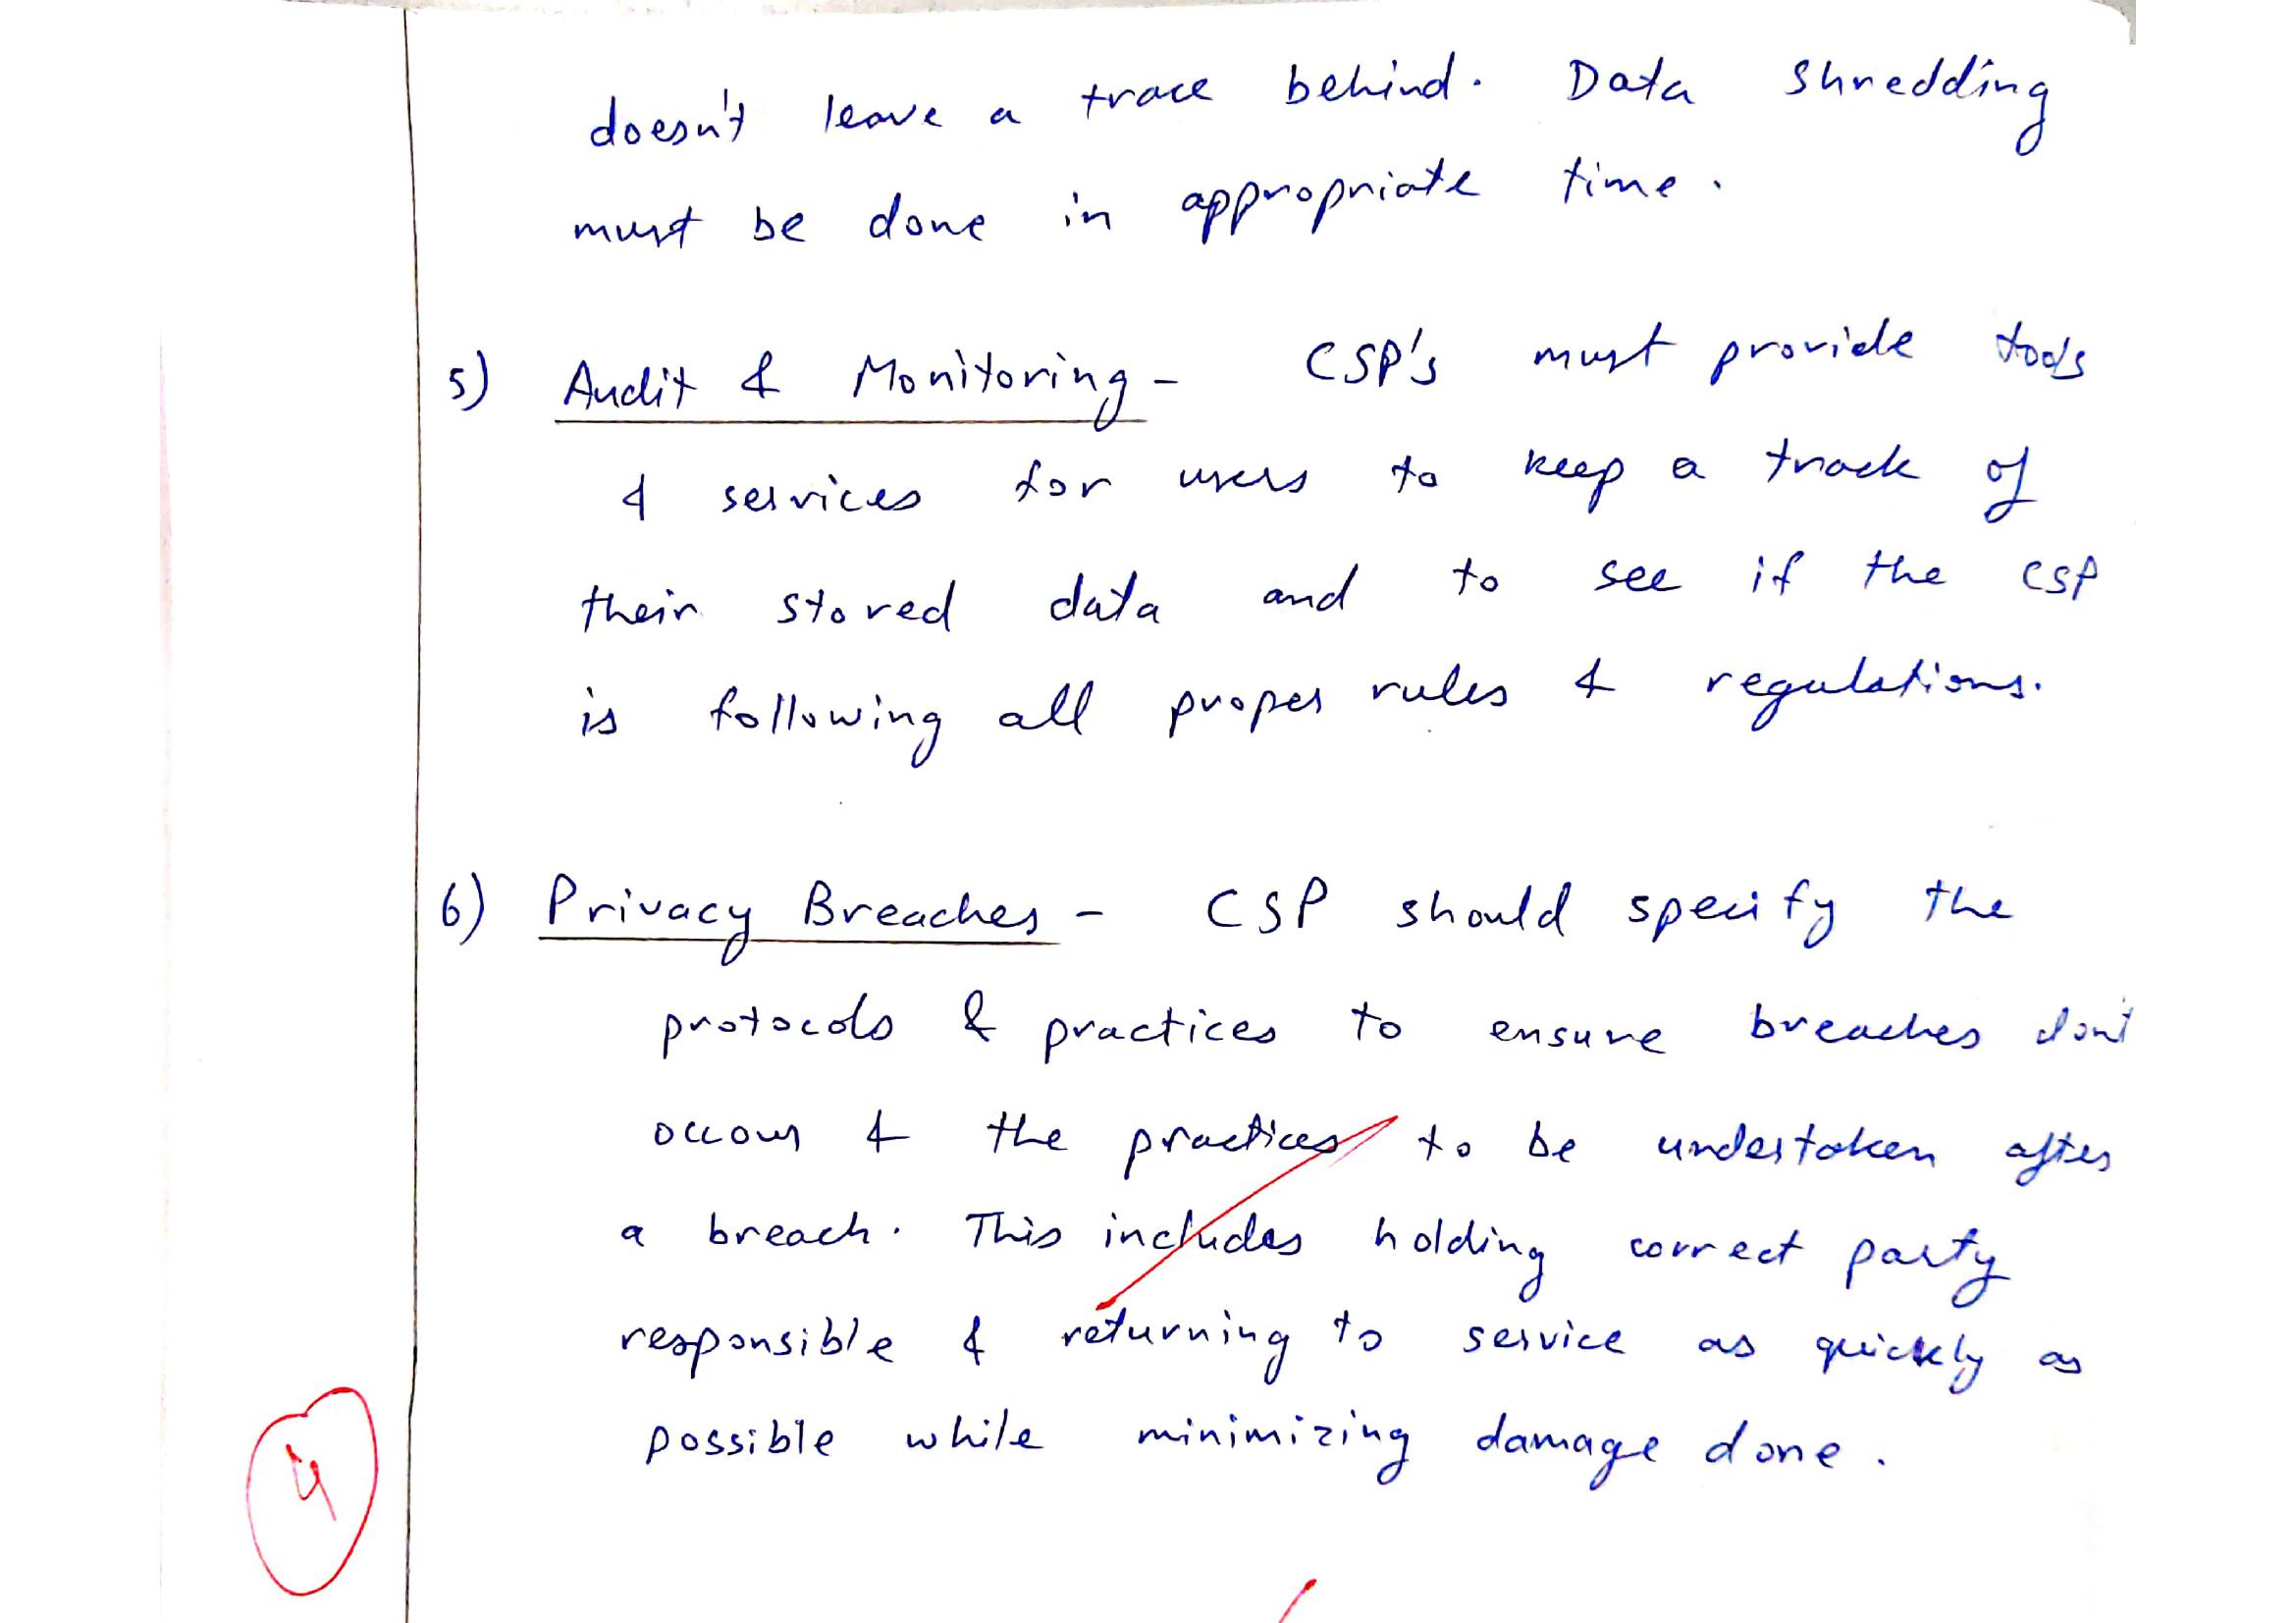 doesn't leave a trace behind. Data shredding
must be done in appropriate time.
5) Audit & Monitoring - CSP's must provide tools
& services for users to keep a track of
their stored data and to see if the CSP
is following all proper rules & regulations.
6) Privacy Breaches - CSP should specify the
protocols & practices to ensure breaches don't
occour & the practices to be undertaken after
a breach. This includes holding correct party
responsible & returning to service as quickly as
possible while minimizing damage done.
4